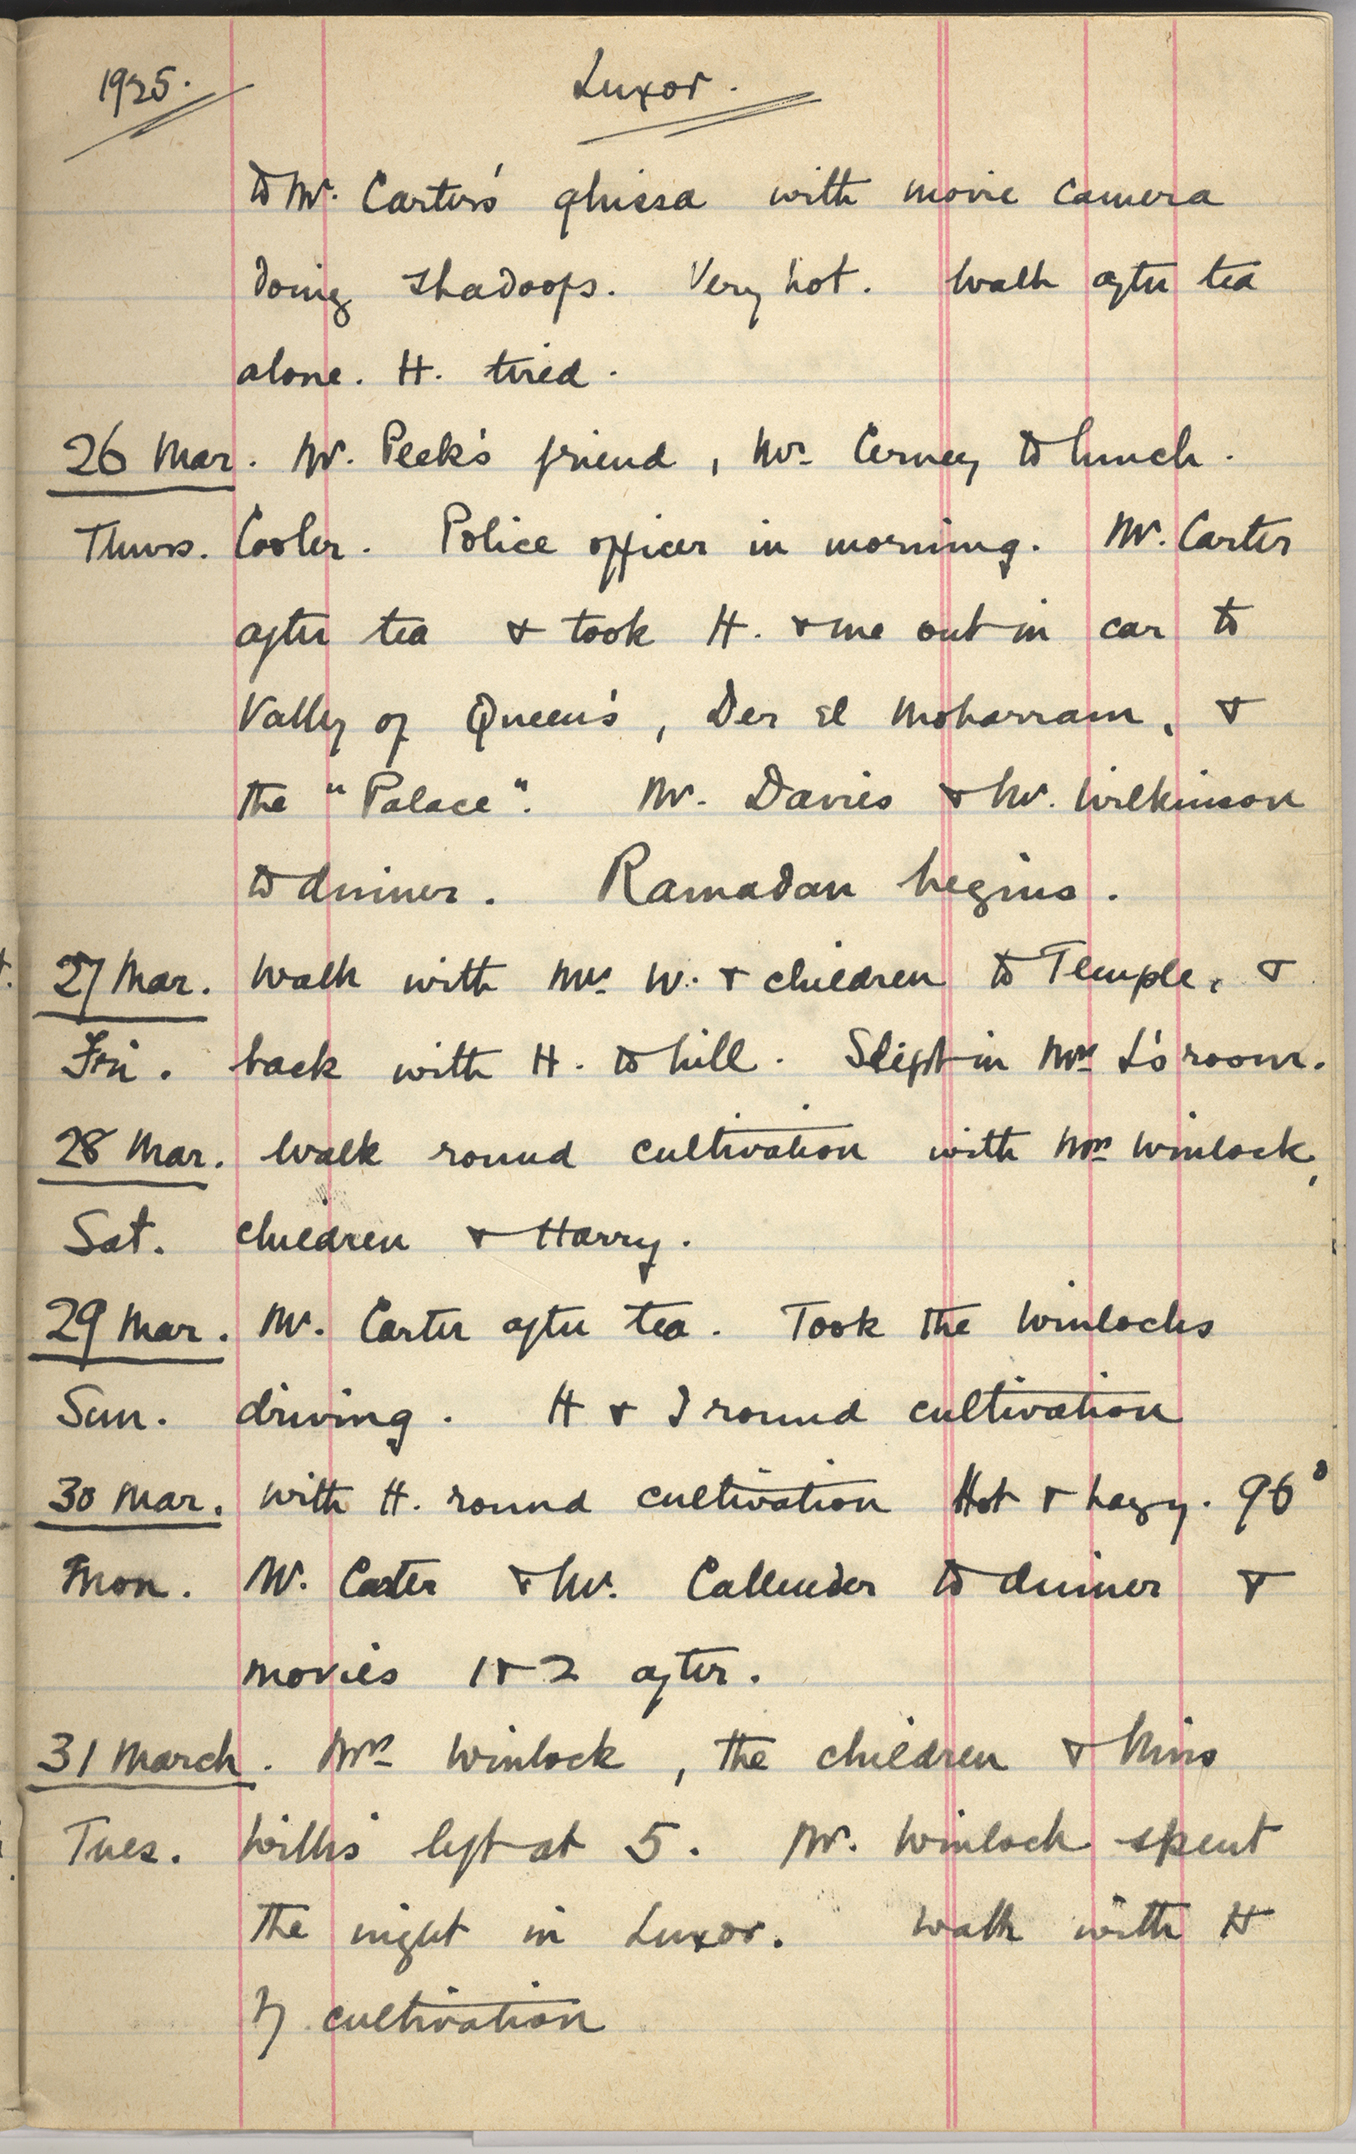 1925. Luxor.
to Mr. Carter's ghissa with movie camera
doing shadoofs. Very hot. Walk after tea
alone. H. tired.
26 Mar. Mr. Peek's friend, Mr. Cerney to lunch.
Thurs. Cooler. Police officer in morning. Mr. Carter
after tea & took H. & me out in car to
Valley of Queen's, Der el Moharram, &
the "Palace". Mr. Davies & Mr. Wilkinson
to dinner. Ramadan begins.
27 Mar. Walk with Mrs W. & children to Temple, &
Fri. back with H. to hill. Slept in Mrs L's room.
28 Mar. Walk round cultivation with Mrs Winlock,
Sat. children & Harry.
29 Mar. Mr. Carter after tea. Took the Winlocks
Sun. driving. H & I round cultivation
30 Mar. with H. round cultivation Hot & hazy. 96°
Mon. Mr. Carter & Mr. Callender to dinner &
movies 1 & 2 after.
31 March. Mrs Winlock, the children & Miss
Tues. Willis left at 5. Mr. Winlock spent
the night in Luxor. Walk with H
by cultivation